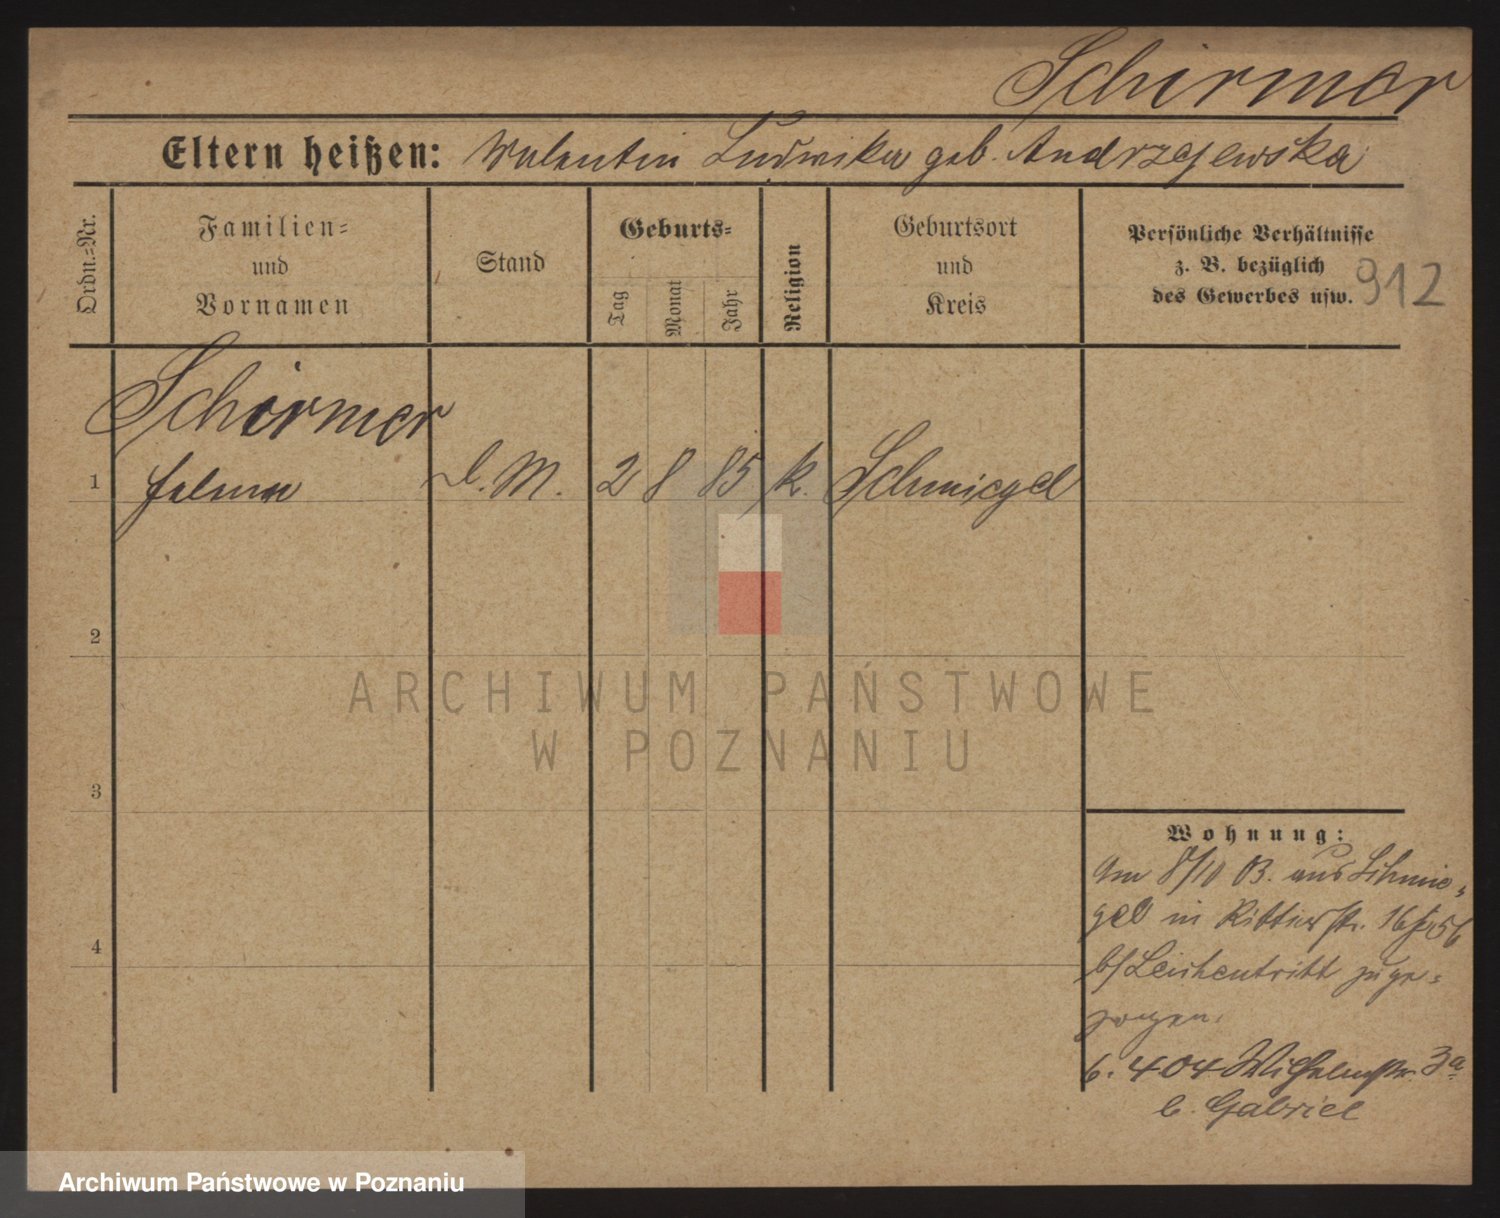 Schirmer
Eltern heißen: Valentin Ludwika geb. Andrzejewska
Ordn.=Nr.
Familien=
und
Vornamen
Stand
Geburts=
Tag
Monat
Jahr
Religion
Geburtsort
und
Kreis
Persönliche Verhältnisse
z. B. bezüglich
des Gewerbes usw.
912
Schirmer
1 Helena d. M. 2 8 85 k. Schmiegel
2
ARCHIWUM PAŃSTWOWE
W POZNANIU
3
Wohnung:
Am 8/10 03. aus Schmie=
gel in Ritterstr. 16
b/ Leichentritt zuge=
zogen.
6. 4 04 Wilhelmstr. 3a
b. Gabriel
4
Archiwum Państwowe w Poznaniu